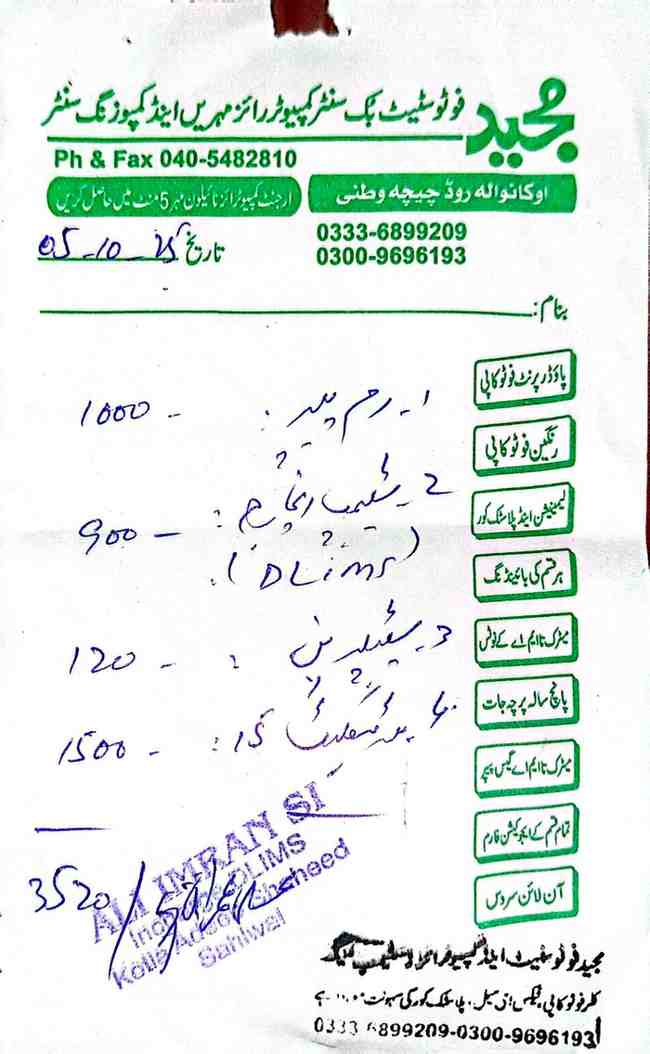 مجید
فوٹو سٹیٹ بک سنٹر کمپیوٹرائز مہریں اینڈ کمپوزنگ سنٹر
Ph & Fax 040-5482810
اوکانوالہ روڈ چیچہ وطنی
ارجنٹ کمپیوٹرائز نائیلون مہر 5 منٹ میں حاصل کریں
0333-6899209
0300-9696193
تاریخ 05-10-25
بنام:
پاؤڈر پرنٹ فوٹو کاپی
1۔ رم پیپر : 1000 -
رنگین فوٹو کاپی
لیمینیشن اینڈ پلاسٹک کور
2۔ انچارج : 900 -
(DLims)
ہر قسم کی بائینڈنگ
میٹرک تا ایم اے کے نوٹس
3۔ : 120 -
پانچ سالہ پرچہ جات
4۔ 15 : 1500 -
میٹرک تا ایم اے گیس پیپر
تمام قسم کے ایجوکیشن فارم
آن لائن سروس
3520/
ALI IMRAN SI
DLIMS
Sahiwal
مجید فوٹو سٹیٹ اینڈ کمپیوٹرائز
کلر فوٹو کاپی، فیکس، ای میل، پلاسٹک کور کی سہولت ہے
0333-6899209-0300-9696193